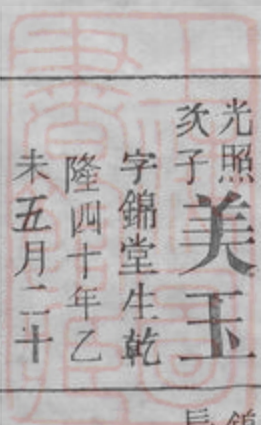 光照
次子
美玉
字錦堂生乾
隆四十年乙
未五月二十